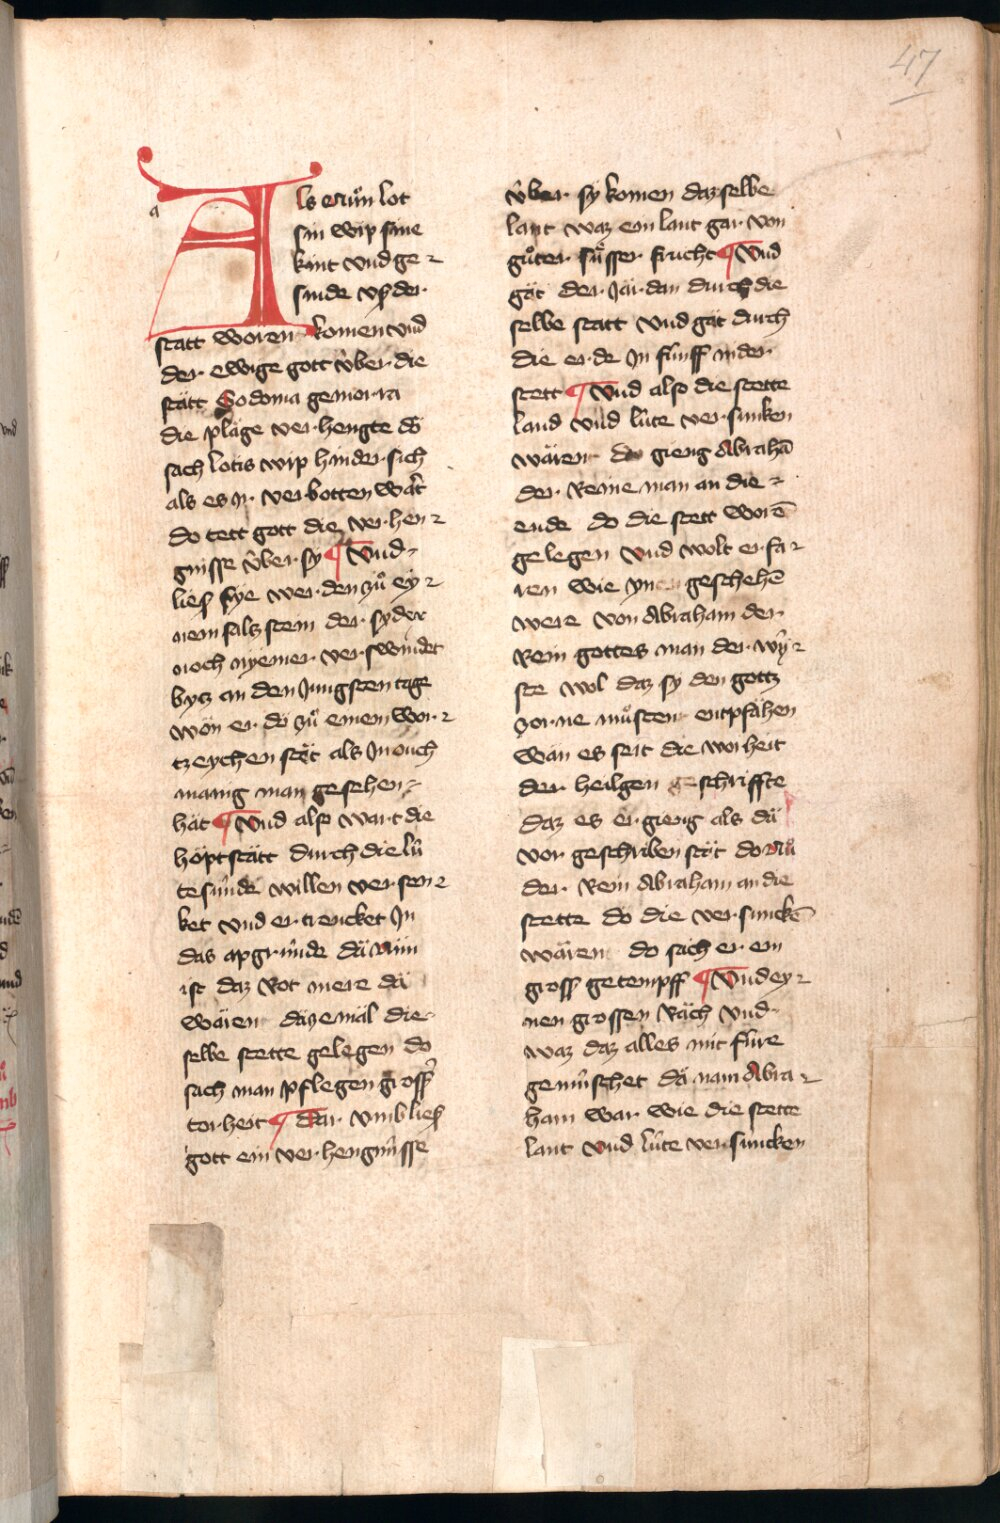 47
Als er nůn lot
sin wip sine
kint vnd ge⸗
sinde vß der
statt woren komen vnd
der ewige gott v̂ber die
stätt Sodoma gemorra
die plage verhengte do
sach lotis wip hinder sich
als es Jr verbotten wart
do tett gott die verhen⸗
gnisse v̂ber sy ¶ Vnd⸗
ließ sye werden zů ey⸗
nem salzstein der syder
noch nyemer verswindet
bycz an den Jungsten tage
wön er do zů einem wor⸗
tzeychen stät als In ouch
manig man gesehen⸗
hät ¶ Vnd also wart die
höptstätt durch die lu̍
te sünde willen versen⸗
ket vnd ertrencket In
das apgründe dä nün
ist daz Rot mere dä
wären däzemäl die⸗
selbe stette gelegen do
sach man pflegen grosser
torheit ¶ Dar vmb ließ
gott ein verhengnüsse
v̂ber sy komen daz selbe
lant waz ein lant gar von
gůter sůsser frucht ¶ Vnd
gät der Jardan durch die
selbe statt vnd gät durch
die erde In fünff ander
stett ¶ Vnd also die stette
land vnd lüte versunken
wären do gieng Abrahā
der Reine man an die⸗
ende do die stett worē
gelegen vnd wolt erfa⸗
ren wie yn geschehē
were von Abraham der
Rein gottes man der wÿ⸗
ste wol daz sy den gottz
zorne můsten entpfähen
wän es seit die worheit
der heilgen geschriffte
daz es ergieng als dä
vor geschriben stät do nů
der Rein Abraham an die
stette do die versunckē
wären do sach er ein
gross getempff ¶ Vnd ey⸗
nen grossen Räch vnd
waz daz alles mit füre
gemüschet dä nam Abra⸗
ham war wie die stette
lant vnd lüte versuncken